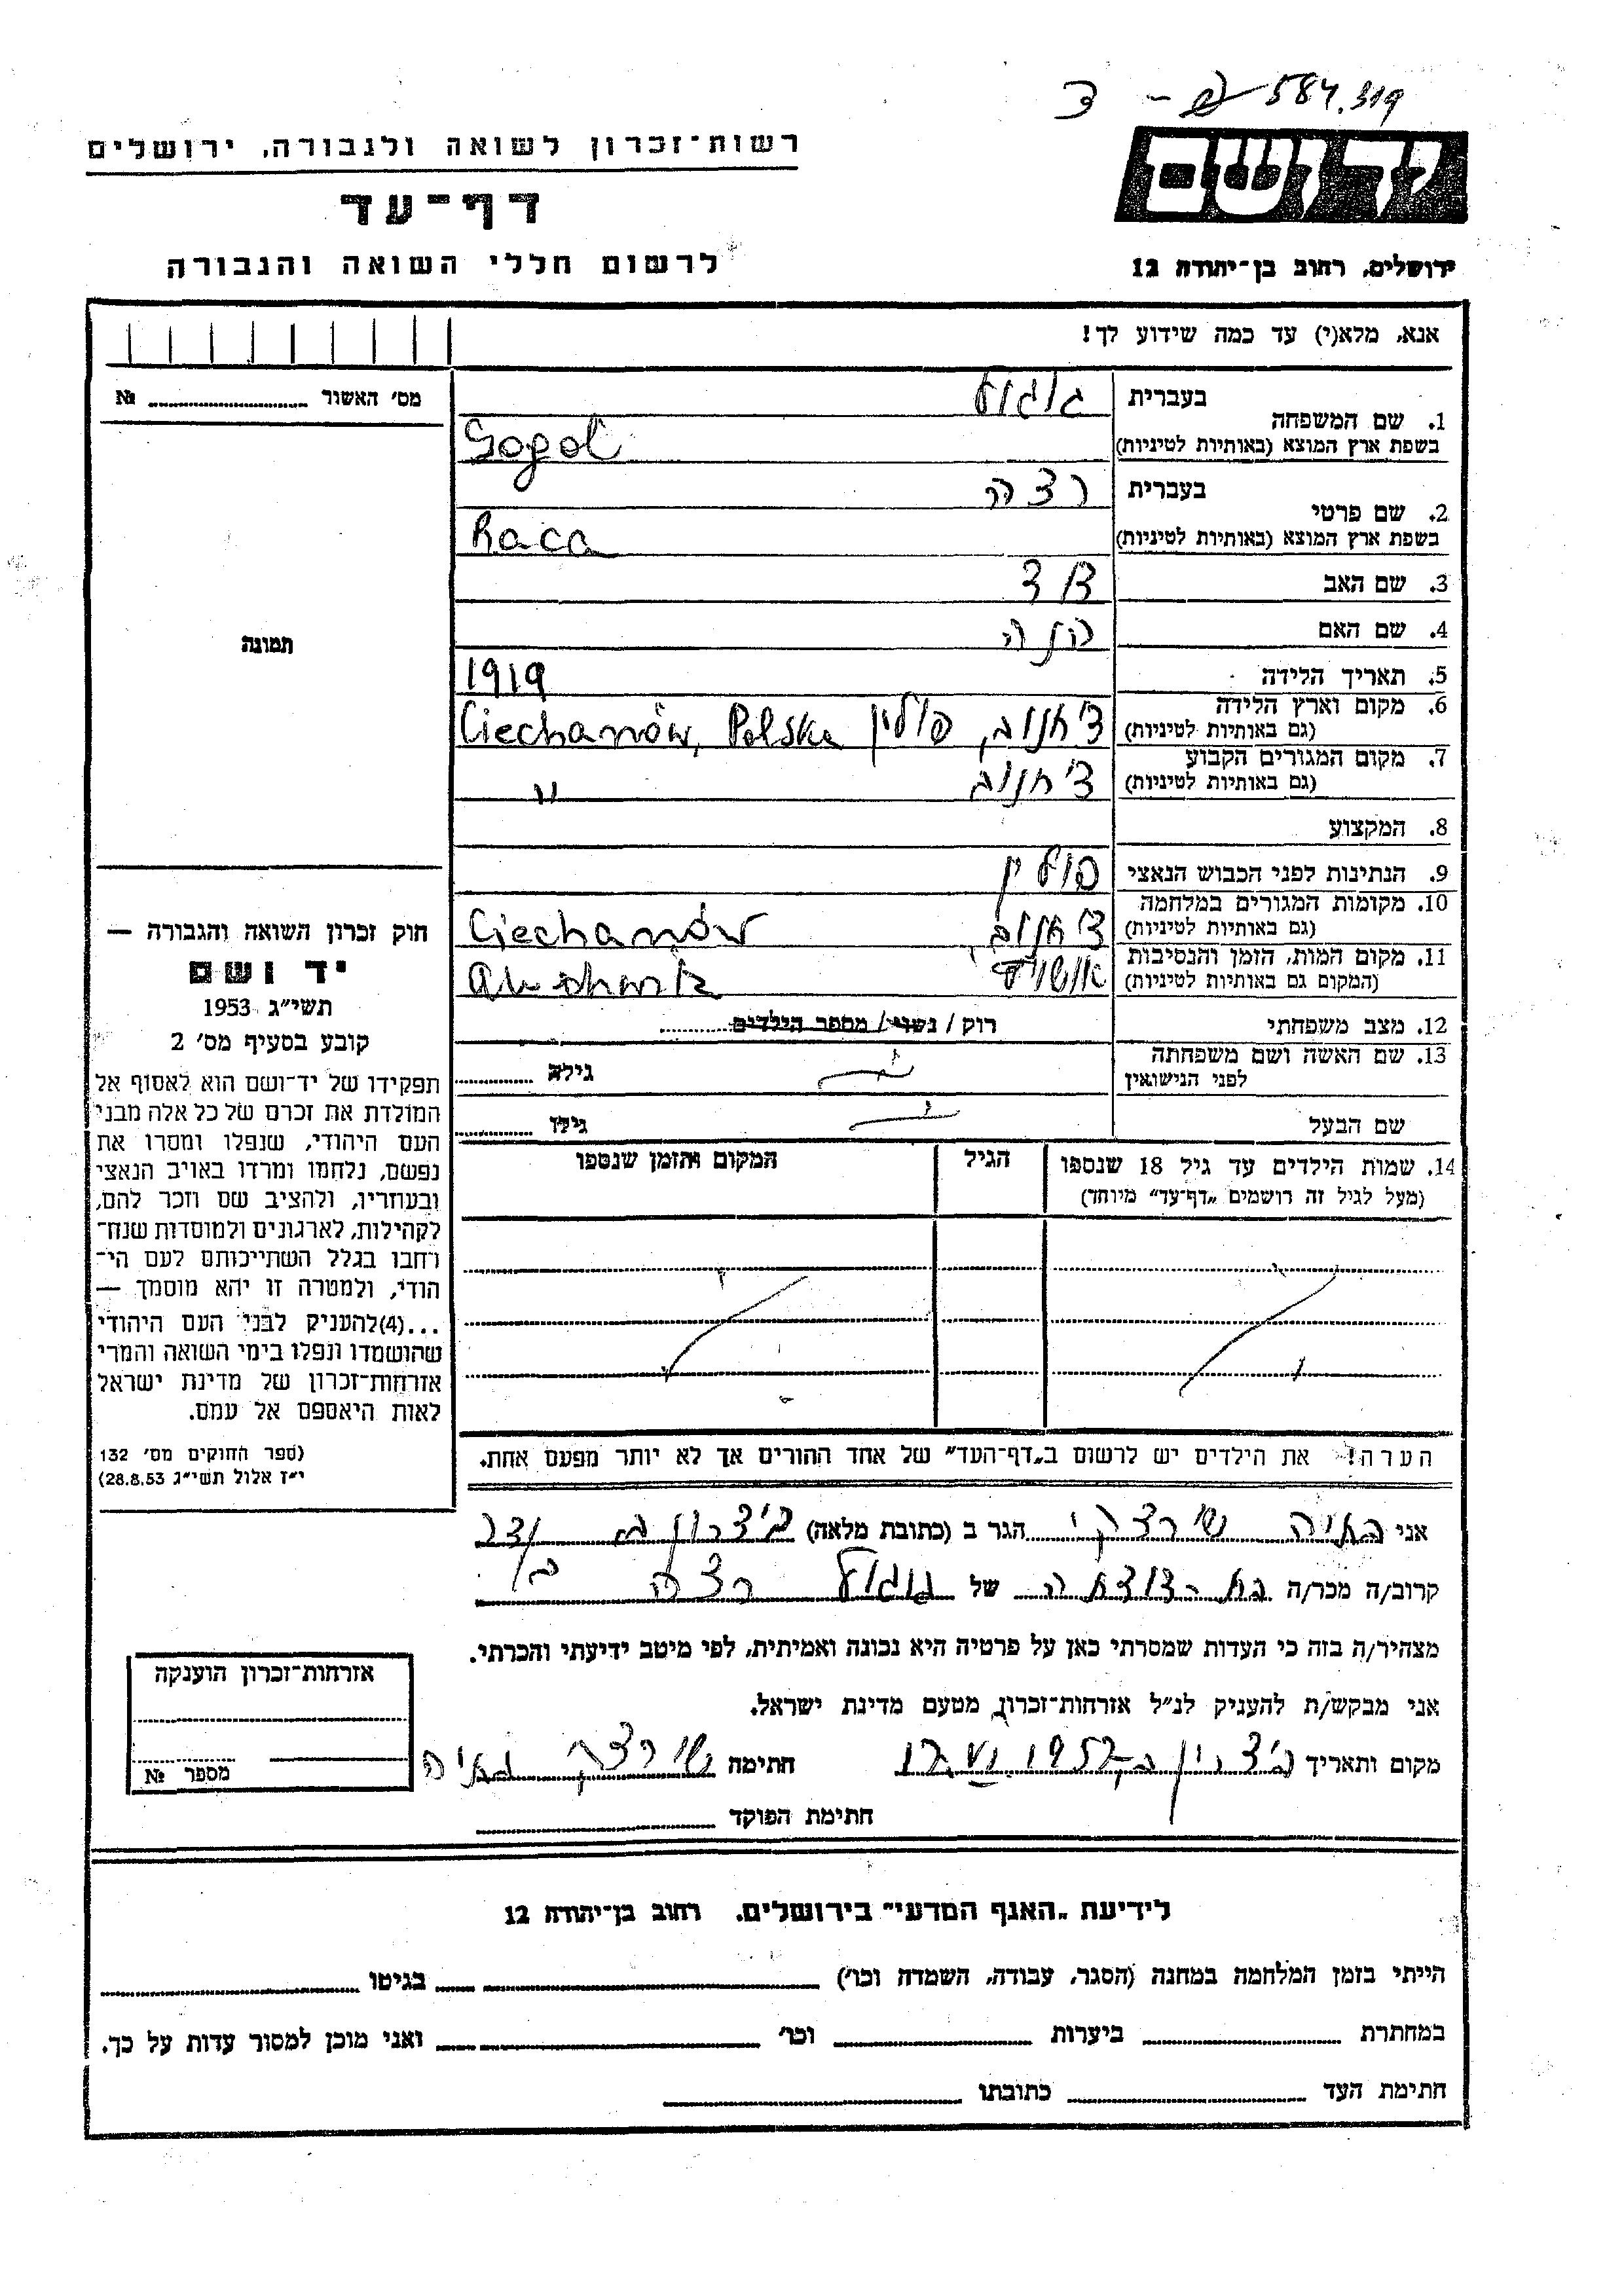 ד - 584.319
רשות־זכרון לשואה ולגבורה, ירושלים
יד ושם
דף־עד
לרשום חללי השואה והגבורה
ירושלים, רחוב בן־יהודה 12
אנא, מלא(י) עד כמה שידוע לך!
מס׳ האשור № 
1. שם המשפחה
בעברית גוגול
בשפת ארץ המוצא (באותיות לטיניות) Gogol
2. שם פרטי
בעברית רצה
בשפת ארץ המוצא (באותיות לטיניות) Raca
3. שם האב דוד
4. שם האם חנה
תמונה
5. תאריך הלידה 1919
6. מקום וארץ הלידה (גם באותיות לטיניות) צ׳חנוב, פולין Ciechanów, Polska
7. מקום המגורים הקבוע (גם באותיות לטיניות) צ׳חנוב "
8. המקצוע
9. הנתינות לפני הכבוש הנאצי פולין
10. מקומות המגורים במלחמה (גם באותיות לטיניות) צ׳חנוב, Ciechanów
11. מקום המות, הזמן והנסיבות (המקום גם באותיות לטיניות) אושויץ
12. מצב משפחתי רוק / נשוי / מספר הילדים
13. שם האשה ושם משפחתה לפני הנישואין גילה
שם הבעל גילו
14. שמות הילדים עד גיל 18 שנספו (מעל לגיל זה רושמים „דף־עד” מיוחד)
הגיל
המקום והזמן שנספו
הערה! את הילדים יש לרשום ב„דף־העד” של אחד ההורים אך לא יותר מפעם אחת.
חוק זכרון השואה והגבורה —
יד ושם
תשי״ג 1953
קובע בסעיף מס׳ 2
תפקידו של יד־ושם הוא לאסוף אל
המולדת את זכרם של כל אלה מבני
העם היהודי, שנפלו ומסרו את
נפשם, נלחמו ומרדו באויב הנאצי
ובעוזריו, ולהציב שם וזכר להם,
לקהילות, לארגונים ולמוסדות שנח־
רחבו בגלל השתייכותם לעם הי־
הודי, ולמטרה זו יהא מוסמך —
...(4)להעניק לבני העם היהודי
שהושמדו ונפלו בימי השואה והמרי
אזרחות־זכרון של מדינת ישראל
לאות היאספם אל עמם.
(ספר החוקים מס׳ 132
י״ז אלול תשי״ג 28.8.53)
אני שירצקי הגר ב (כתובת מלאה) ביצרון
קרוב/ה מכר/ה של גוגול רצה
מצהיר/ה בזה כי העדות שמסרתי כאן על פרטיה היא נכונה ואמיתית, לפי מיטב ידיעתי והכרתי.
אני מבקש/ת להעניק לנ״ל אזרחות־זכרון מטעם מדינת ישראל.
מקום ותאריך ביצרון 1957 חתימה שירצקי
חתימת הפוקד
אזרחות־זכרון הוענקה
מספר №
לידיעת „האגף המדעי” בירושלים, רחוב בן־יהודה 12
הייתי בזמן המלחמה במחנה (הסגר, עבודה, השמדה וכו׳) בגיטו
במחתרת ביערות וכו׳ ואני מוכן למסור עדות על כך.
חתימת העד כתובתו